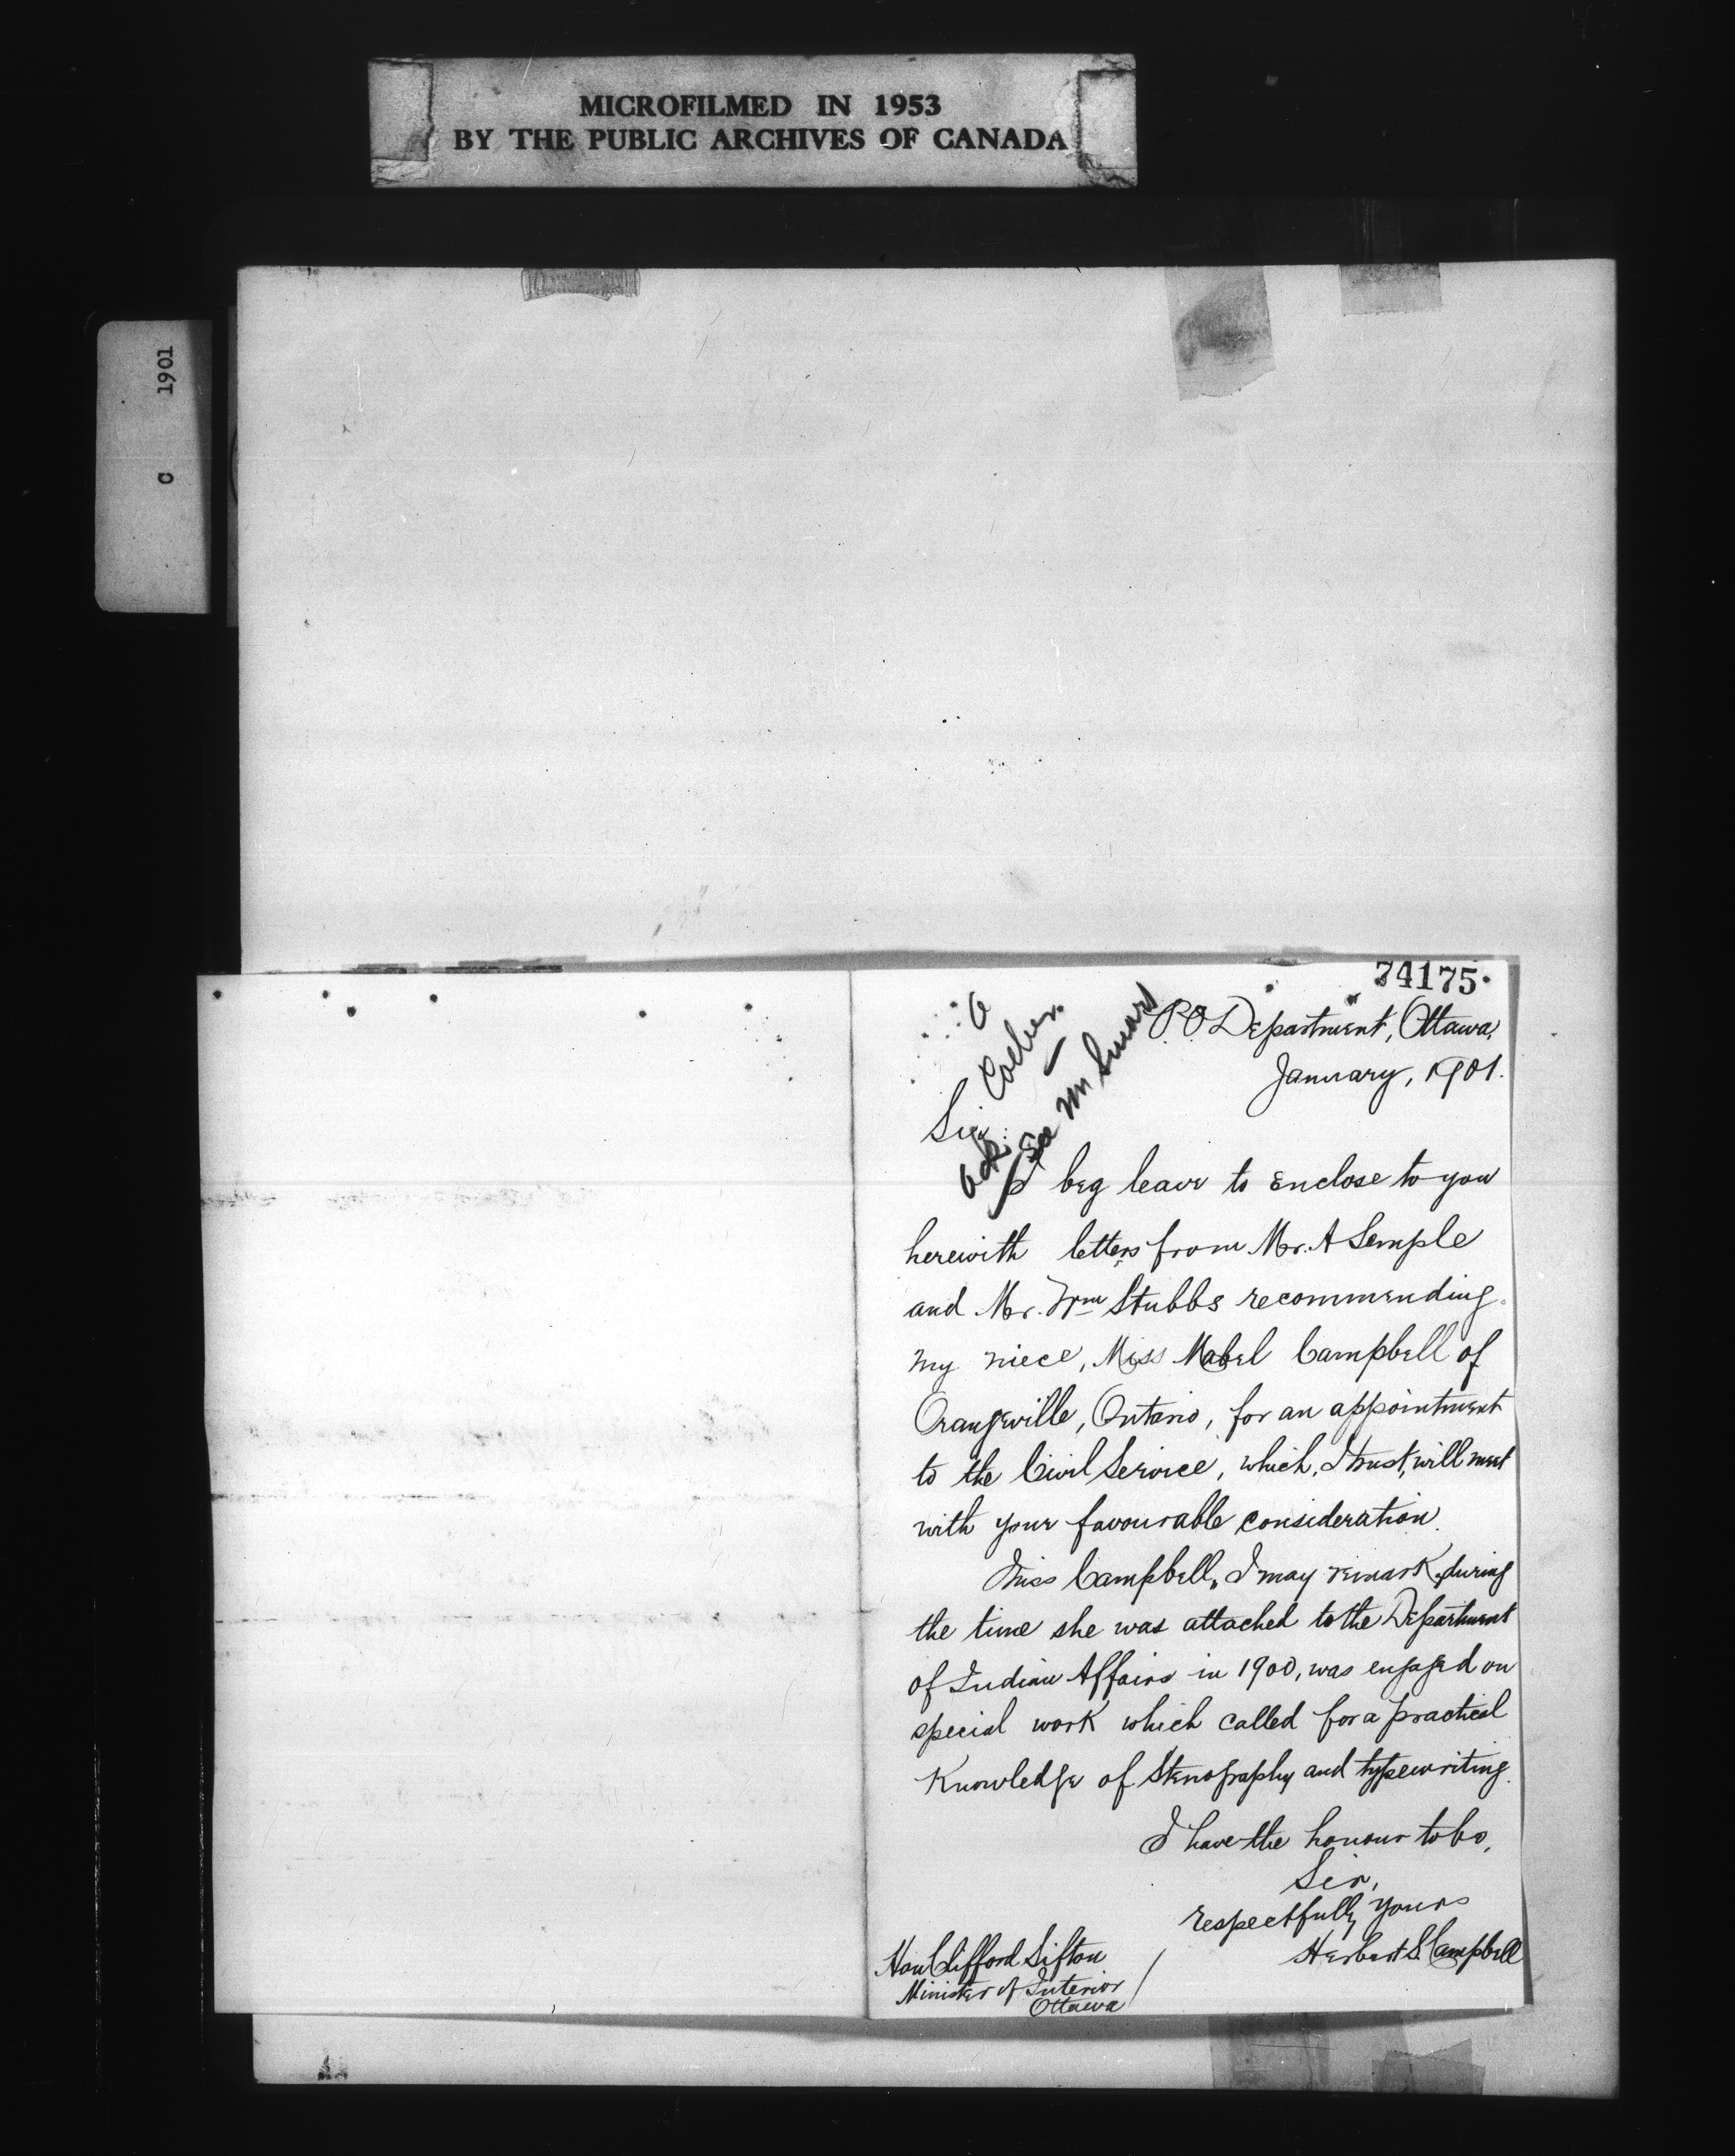 MICROFILMED IN 1953
BY THE PUBLIC ARCHIVES OF CANADA
C 1901
74175
P.O. Department, Ottawa,
January, 1901.
Sir:
Ack.
See Mr Smart
I beg leave to enclose to you
herewith letters from Mr. A Semple
and Mr. Wm Stubbs recommending
my niece, Miss Mabel Campbell of
Orangeville, Ontario, for an appointment
to the Civil Service, which, I trust, will meet
with your favourable consideration.
Miss Campbell, I may remark, during
the time she was attached to the Department
of Indian Affairs in 1900, was engaged on
special work which called for a practical
Knowledge of Stenography and typewriting.
I have the honour to be,
Sir,
respectfully yours
Herbert S. Campbell
Hon Clifford Sifton
Minister of Interior
Ottawa